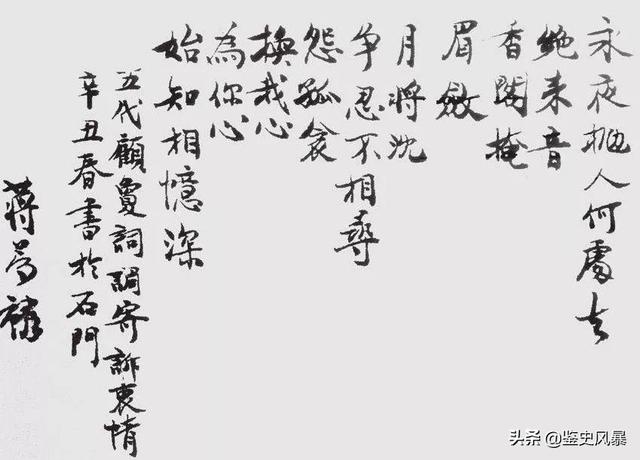 永夜抛人何處去
絶来音
香閣掩
眉斂
月將沈
争忍不相尋
怨孤衾
換我心
為你心
始知相憶深
五代顧夐詞調寄訴衷情
辛丑春書於石門
蔣
头条 @鉴史风暴